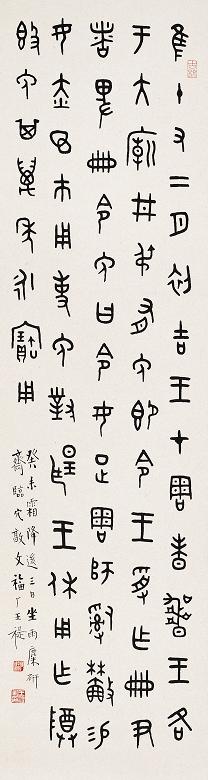 隹十又二月初吉王才周昧爽王各
于大廟井叔有免即令王受乍冊尹
者卑冊令免曰令女疋周師𤔲林易
女赤市用事免對揚王休用乍尊
𣪘免其萬年永寶用
癸未霜降後三日坐雨麋研
齋臨敦文福厂王禔